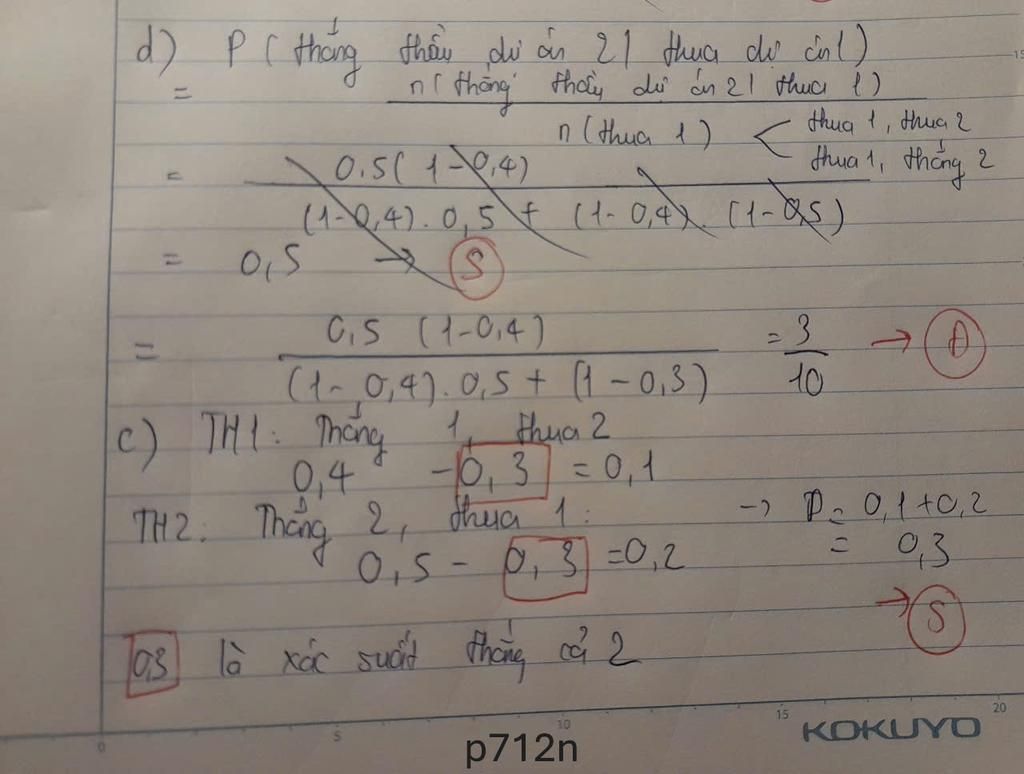 d) P ( thắng thầu dự án 2 | thua dự án 1 )
= n ( thắng thầu dự án 2 | thua 1 )
n ( thua 1 ) < thua 1, thua 2
thua 1, thắng 2
= 0,5 ( 1 - 0,4 )
(1-0,4) . 0,5 + (1-0,4) . (1-0,5)
= 0,5 → S
= 0,5 (1-0,4) = 3/10 → Đ
(1-0,4) . 0,5 + (1-0,3)
c) TH1: Thắng 1, thua 2
0,4 - 0,3 = 0,1
TH2: Thắng 2, thua 1:
0,5 - 0,3 = 0,2
→ P = 0,1 + 0,2
= 0,3
→ S
0,3 là xác suất thắng cả 2
0 5 10 15 20
KOKUYO
p712n